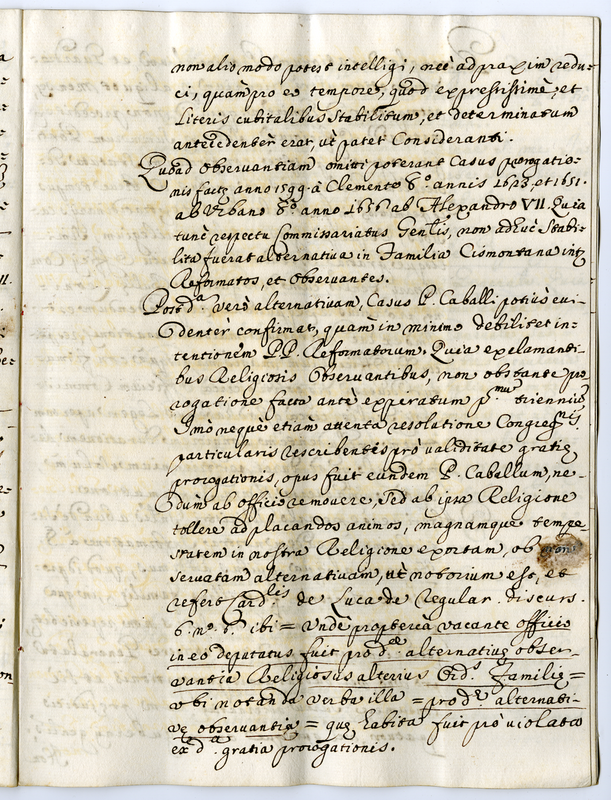 non alio modo potest intelligi, neč ad praxim redu-
ci, quam pro eo tempore, quod expressissimè, et
Literis cubitalibus Stabilitum, et determinatum
antecedenter erat, ut patet Consideranti.
Quoad observantiam omitti poterant Casus prorogatio-
nis factę anno 1599. à Clemente 8.º annis 1623, et 1651.
ab Urbano 8.º anno 1656 ab Alexandro VII. Quia
tunc respectu Commissariatus Gen͠lis, non adhuc stabi-
lita fuerat alternativa in Familia Cismontana inter
Reformatos, et Observantes.
Post d.ᵃ verò alternativam, Casus P. Caballi potiùs evi-
denter confirmat, quam in minimo debilitet in-
tentionem PP. Reformatorum, Quia exclamanti-
bus Religiosis Observantibus, non obstante pro-
rogatione facta antè expiratum p.ᵐᵘᵐ triennium
Imo neque etiam attenta resolutione Congreg.ⁿⁱˢ
particularis rescribentis prò validitate gratię
prorogationis, opus fuit eundem P. Caballum, ne-
dum ab officio removere, sed ab ipsa Religione
tollere ad placandos animos, magnamque tempe
statem in nostra Religione exortam, ob
servatam alternativam, ut notorium est, et
refert Card.ˡⁱˢ de Luca de regular. discurs.
6 n.º ibi = Undè proptereà vacante officio
in eo deputatus fuit pro d.ᵉ alternativę obser-
vantia Religiosus alterius Ord.ˢ Familię =
ubi notanda verba illa = pro d.ᵉ alternati-
vę observantia = quę habita fuit prò violata
ex d.ᵃ gratia prorogationis.